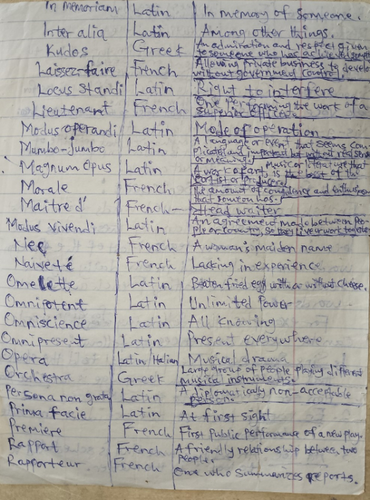 In Memoriam Latin In memory of someone.
Inter alia Latin Among other things.
Kudos Greek An admiration and respect given
to someone who has achieved
Laissez-faire French Allowing private business to develop
without government control.
Locus Standi Latin Right to interfere
Lieutenant French One performing the work of a
superior officer
Modus operandi Latin Mode of operation
Mumbo-jumbo Latin A language or event that seems com
Magnum Opus Latin A work of art, that
is the best of the
Morale French The amount of confidence and enthusiasm
that someone has.
Maitre d' French Head waiter
Modus vivendi Latin An agreement made between peo
ple or country, so they live or work together
Nee French A woman's maiden name
Naiveté French Lacking in experience.
Omelette Latin Beaten fried egg with or without cheese.
Omnipotent Latin Unlimited power
Omniscience Latin All knowing
Omnipresent Latin Present everywhere
Opera Latin/Italian Musical drama
Orchestra Greek Large group of people playing different
musical instruments
Persona non grata Latin Diplomatically non-acceptable
person
Prima facie Latin At first sight
Premiere French First public performance of a new play
Rapport French A friendly relationship between two
people.
Rapporteur French One who summarizes reports.